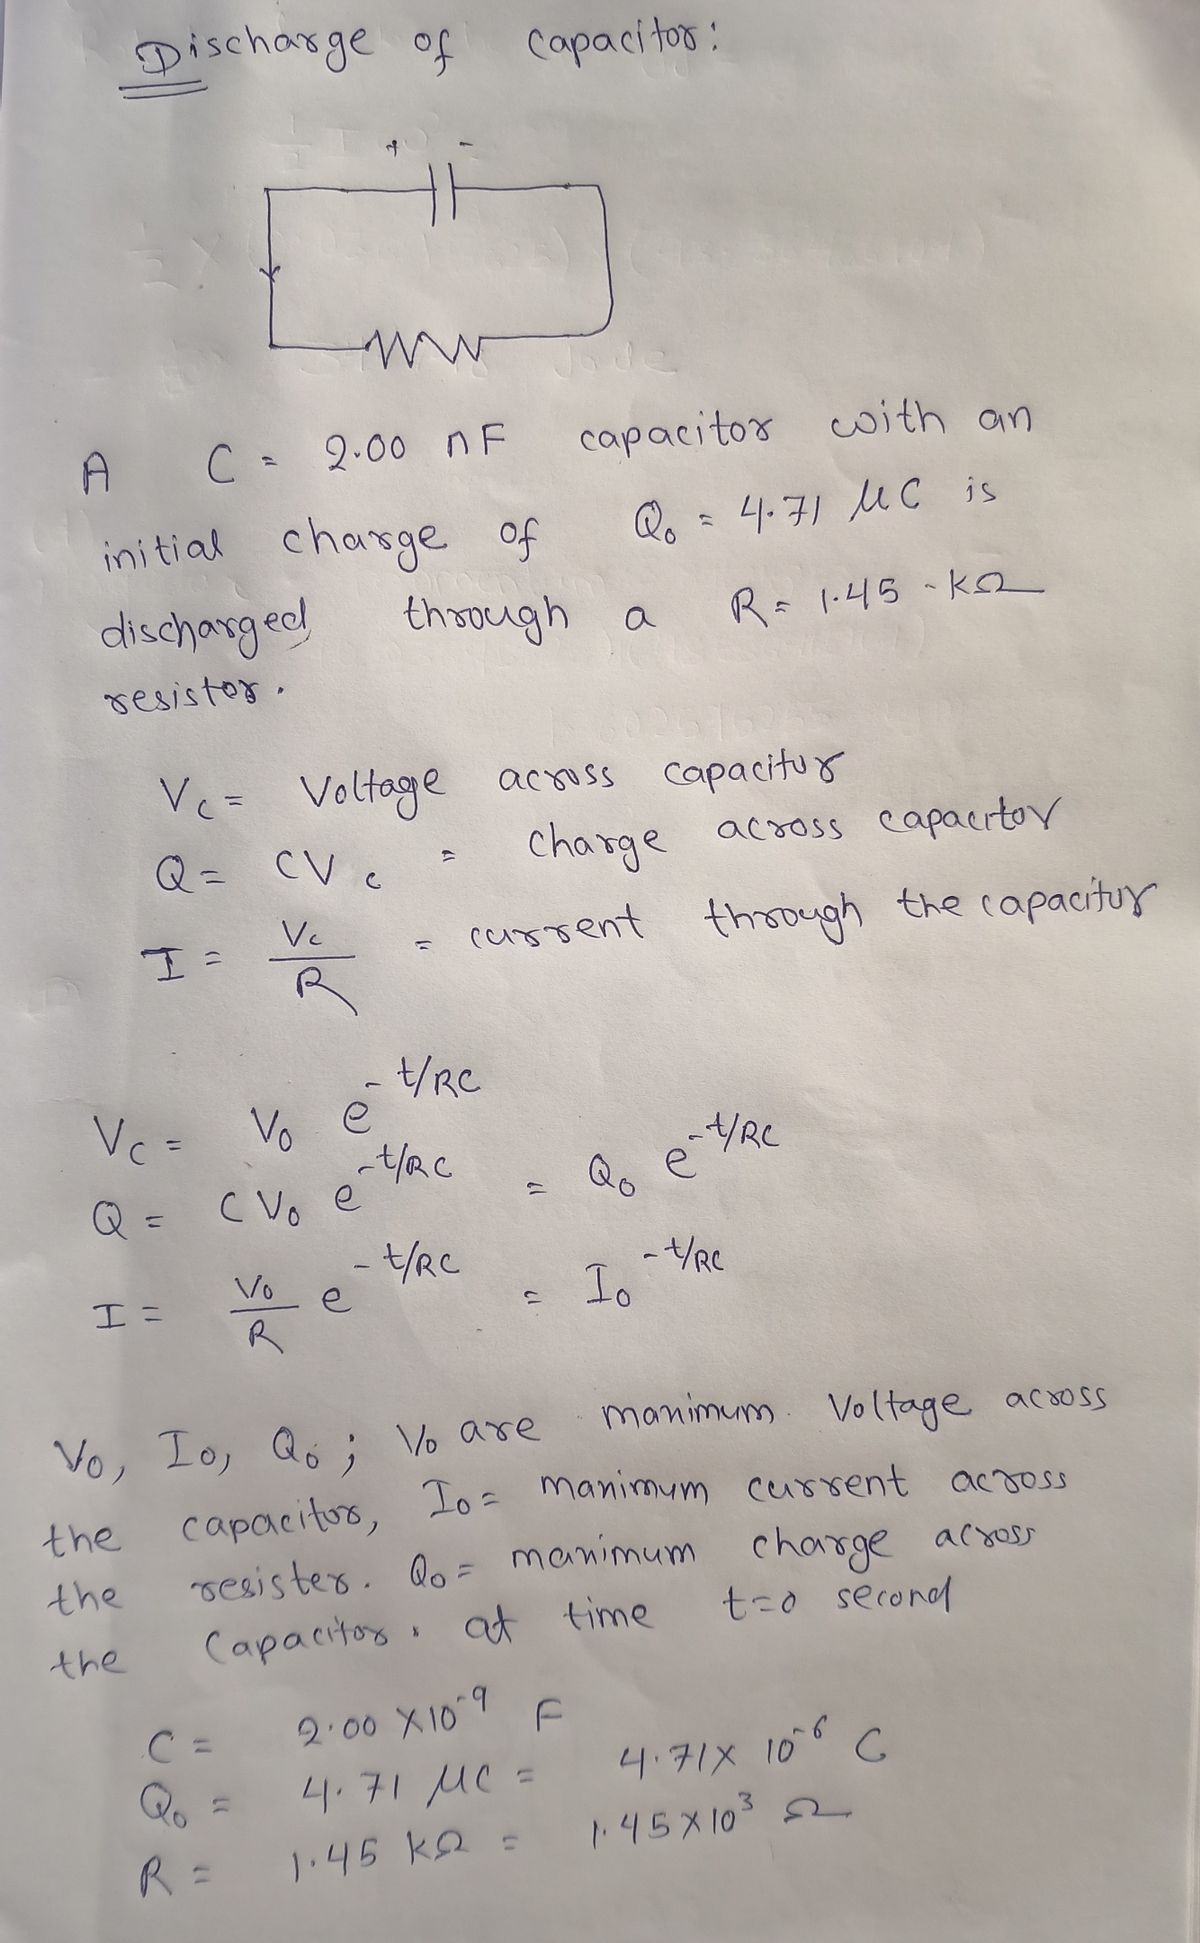 Discharge of capacitor:
+ -
A C = 2.00 nF capacitor with an
initial charge of Q₀ = 4.71 μC is
discharged through a R = 1.45 - kΩ
resistor.
Vc = Voltage across capacitur
Q = CVc = charge across capacitor
I = Vc/R = current through the capacitur
Vc = V₀ e^-t/RC
Q = CV₀ e^-t/RC = Q₀ e^-t/RC
I = V₀/R e^-t/RC = I₀ ^-t/RC
V₀, I₀, Q₀ ; V₀ are manimum Voltage across
the capacitor, I₀ = manimum current across
the resister. Q₀ = manimum charge across
the Capacitor. at time t=0 second
C = 2.00 X10^-9 F
Q₀ = 4.71 μC = 4.71X 10^-6 C
R = 1.45 kΩ = 1.45X10^3 Ω